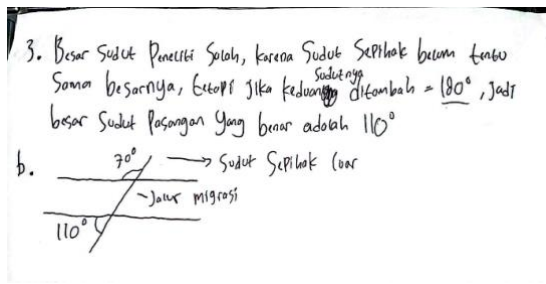 3. Besar Sudut Peneliti Salah, karena Sudut Sepihak belum tentu
Sama besarnya, tetapi jika keduanya Sudutnya ditambah = 180°, Jadi
besar Sudut Pasangan Yang benar adalah 110°
b. 70° → Sudut Sepihak luar
- Jalur migrasi
110°